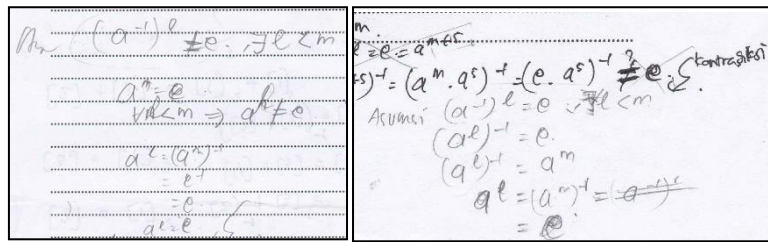 (a⁻¹)^ℓ ≠ e. ∃ℓ < m
a^m = e
∀ℓ < m ⇒ a^ℓ ≠ e
a^ℓ = (a^m)⁻¹
= e⁻¹
= e
a^ℓ = e
m.
ℓ = e = a^m+s
s)⁻¹ = (a^m . a^s)⁻¹ = (e . a^s)⁻¹ ≠ e. kontradiksi
Asumsi (a⁻¹)^ℓ = e ℓ < m
(a^ℓ)⁻¹ = e.
(a^ℓ)⁻¹ = a^m
a^ℓ = (a^m)⁻¹ =
= e